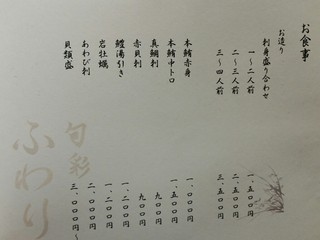 お食事
お造り
刺身盛り合わせ
一〜二人前 一、五〇〇円
二〜三人前 二、五〇〇円
三〜四人前 三、五〇〇円
本鮪赤身 一、〇〇〇円
本鮪中トロ 一、五〇〇円
真鯛刺 九〇〇円
赤貝刺 九〇〇円
鱧湯引き 一、二〇〇円
岩牡蠣 一、二〇〇円
あわび刺 二、〇〇〇円
貝類盛 三、〇〇〇円〜
旬彩
ふわり